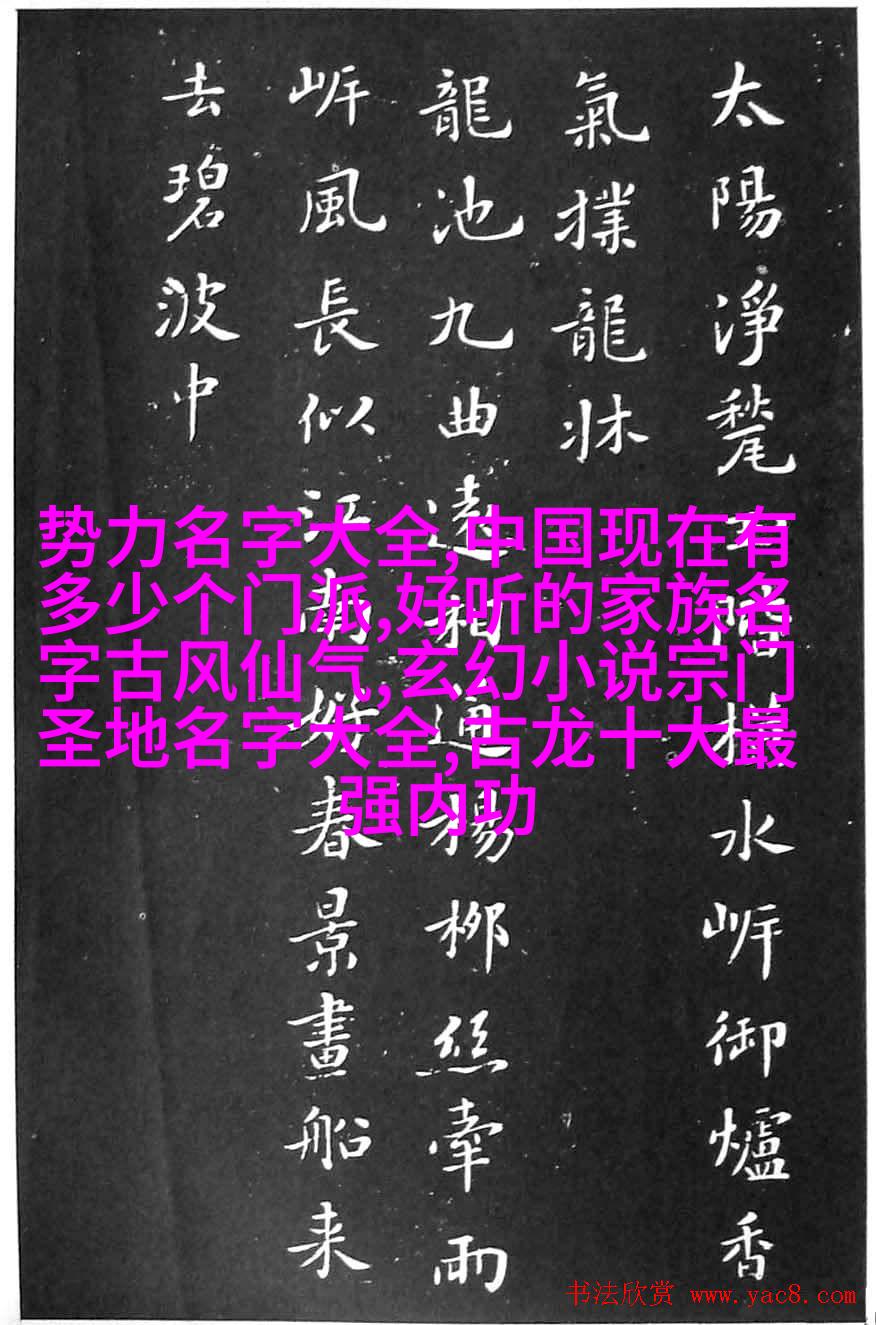 太陽淨甃玉階横水岸御爐香
氣撲龍牀
龍池九曲遠相通楊柳絲牽兩
岸風長似江南好春景畫船来
去碧波中
势力名字大全,中国现在有
多少个门派,好听的家族名
字古风仙气,玄幻小说宗门
圣地名字大全,古龙十大最
强内功
书法欣赏 www.yac8.com